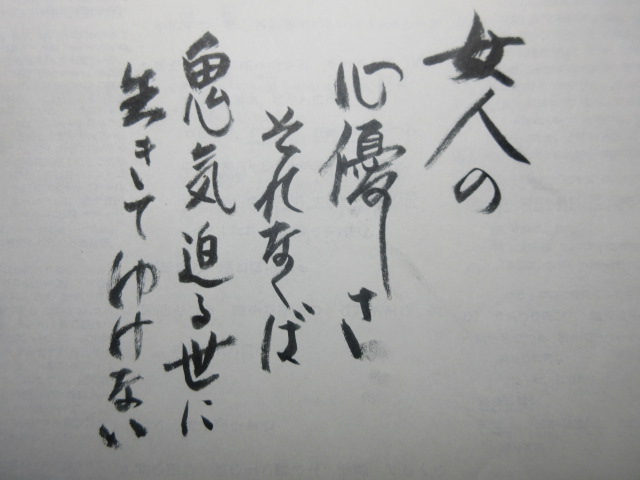 女人の
心優さ
それなくば
鬼気迫る世に
生きてゆけない